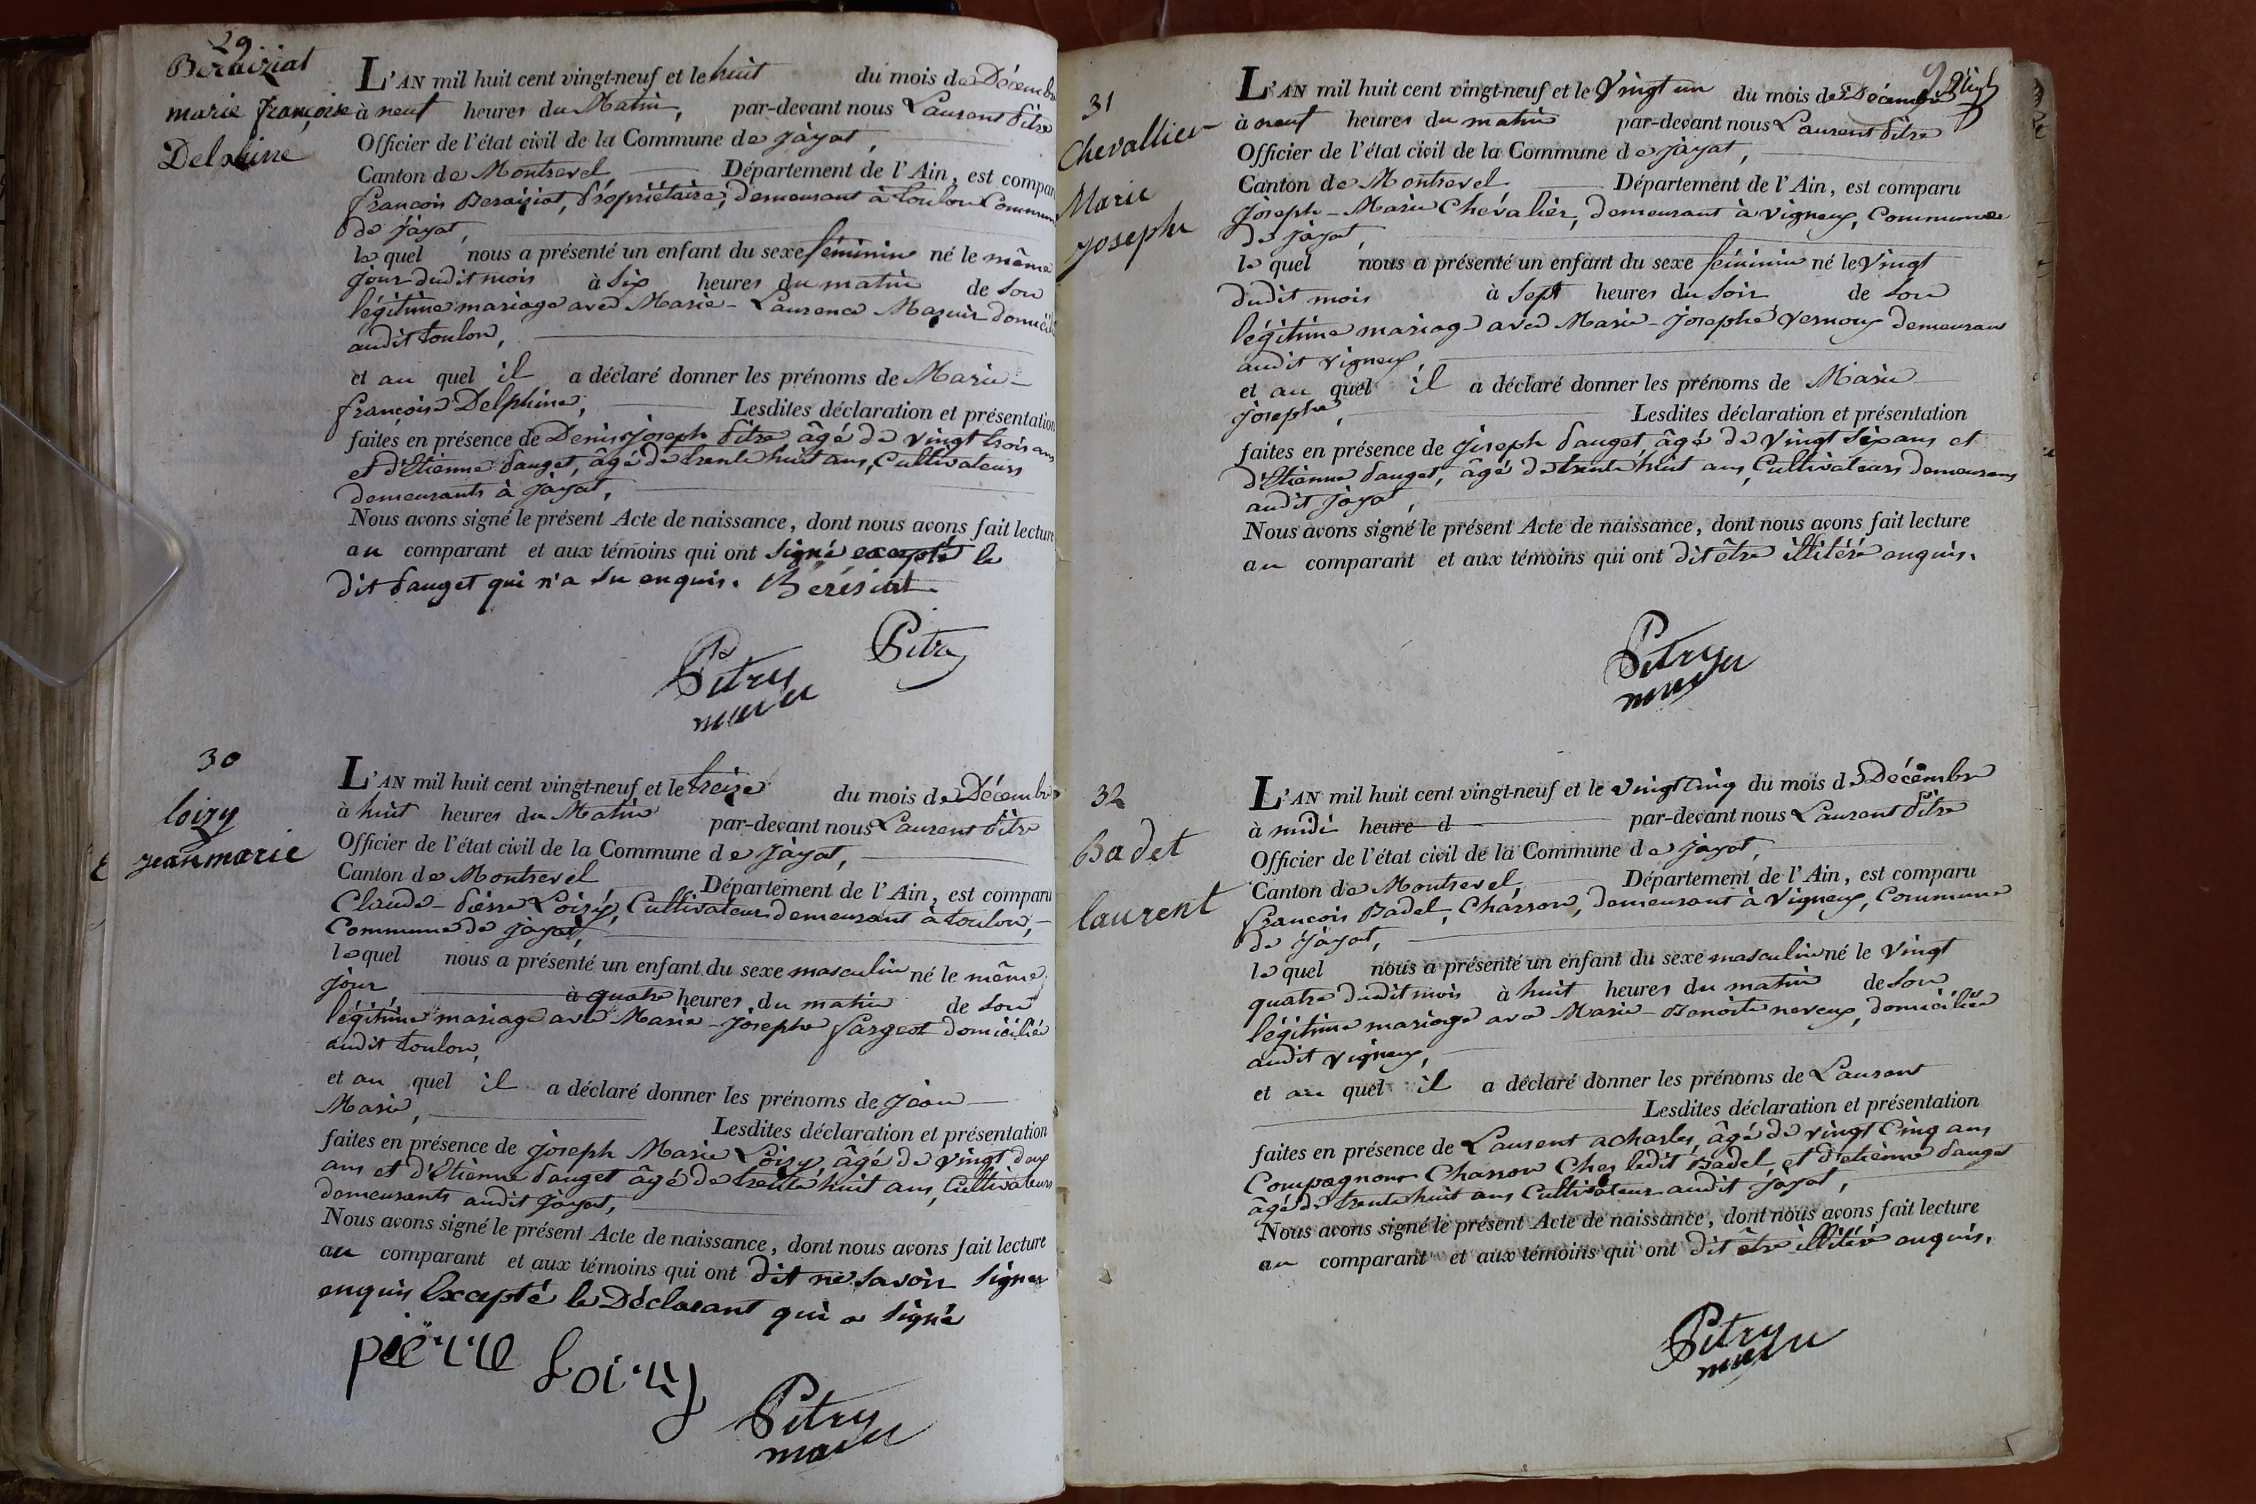 29
Beraiziat
marie françoise
Delphine
L'AN mil huit cent vingt-neuf et le huit du mois de Décembre
à neuf heures du Matin, par-devant nous Laurent Pitre
Officier de l'état civil de la Commune de Jayat,
Canton de Montrevel Département de l'Ain, est comparu
françois Beraiziat, Propriétaire, demeurant à toulon Commune
de Jayat,
le quel nous a présenté un enfant du sexe féminin né le même
jour dudit mois à six heures du matin de son
légitime mariage avec Marie-Laurence Masuir domicilié
audit toulon,
et au quel il a déclaré donner les prénoms de Marie-
françoise Delphine, Lesdites déclaration et présentation
faites en présence de Denis Joseph Pitre âgé de vingt trois ans
et d'Etienne Pauget, âgé de trente huit ans, Cultivateurs
demeurants à Jayat,
Nous avons signé le présent Acte de naissance, dont nous avons fait lecture
au comparant et aux témoins qui ont signé excepté le
dit Pauget qui n'a su enquis. Bérésiat
Pitre
Pitre
maire
30
loizy
jean marie
L'AN mil huit cent vingt-neuf et le treize du mois de Décembre
à huit heures du Matin par-devant nous Laurent Pitre
Officier de l'état civil de la Commune de Jayat,
Canton de Montrevel Département de l'Ain, est comparu
Claude-Pierre Loizy, Cultivateur demeurant à toulon,
Commune de Jayat,
lequel nous a présenté un enfant du sexe masculin né le même
jour à quatre heures du matin de son
légitime mariage avec Marie-Josephe fargeot domicilié
audit toulon,
et au quel il a déclaré donner les prénoms de Jean
Marie, Lesdites déclaration et présentation
faites en présence de Joseph Marie Loizy âgé de vingt deux
ans et d'Etienne Pauget âgé de trente huit ans, Cultivateurs
demeurants audit Jayat,
Nous avons signé le présent Acte de naissance, dont nous avons fait lecture
au comparant et aux témoins qui ont dit ne savoir signer
enquis Excepté le Déclarant qui a signé
pierre Loizy
Pitre
maire
31
Chevallier
Marie
josephe
L'AN mil huit cent vingt-neuf et le vingt un du mois de Décembre
à neuf heures du matin par-devant nous Laurent Pitre
Officier de l'état civil de la Commune de Jayat,
Canton de Montrevel Département de l'Ain, est comparu
Joseph-Marie Chevalier, demeurant à vigneux, Commune
de Jayat,
le quel nous a présenté un enfant du sexe féminin né le vingt
dudit mois à sept heures du soir de son
légitime mariage avec Marie-Josephe vernoux demeurant
audit vigneux
et au quel il a déclaré donner les prénoms de Marie
Josephe, Lesdites déclaration et présentation
faites en présence de Joseph Pauget, âgé de vingt six ans et
d'Etienne Pauget, âgé de trente huit ans, Cultivateurs demeurans
audit Jayat,
Nous avons signé le présent Acte de naissance, dont nous avons fait lecture
au comparant et aux témoins qui ont dit être illitéré enquis.
Pitre
maire
32
Badet
laurent
L'AN mil huit cent vingt-neuf et le vingt Cinq du mois de Décembre
à midi heure d par-devant nous Laurent Pitre
Officier de l'état civil de la Commune de Jayat,
Canton de Montrevel, Département de l'Ain, est comparu
françois Badel, Charron, demeurant à Vigneux, Commune
de Jayat,
le quel nous a présenté un enfant du sexe masculin né le vingt
quatre dudit mois à huit heures du matin de son
légitime mariage avec Marie-Benoite neveux, domiciliée
audit vigneux,
et au quel il a déclaré donner les prénoms de Laurent
Lesdites déclaration et présentation
faites en présence de Laurent acharles, âgé de vingt Cinq ans
Compagnon Charron Chez ledit Badel, et d'etienne Pauget
âgé de trente huit ans Cultivateur audit Jayat,
Nous avons signé le présent Acte de naissance, dont nous avons fait lecture
au comparant et aux témoins qui ont dit être illitéré enquis.
Pitre
maire